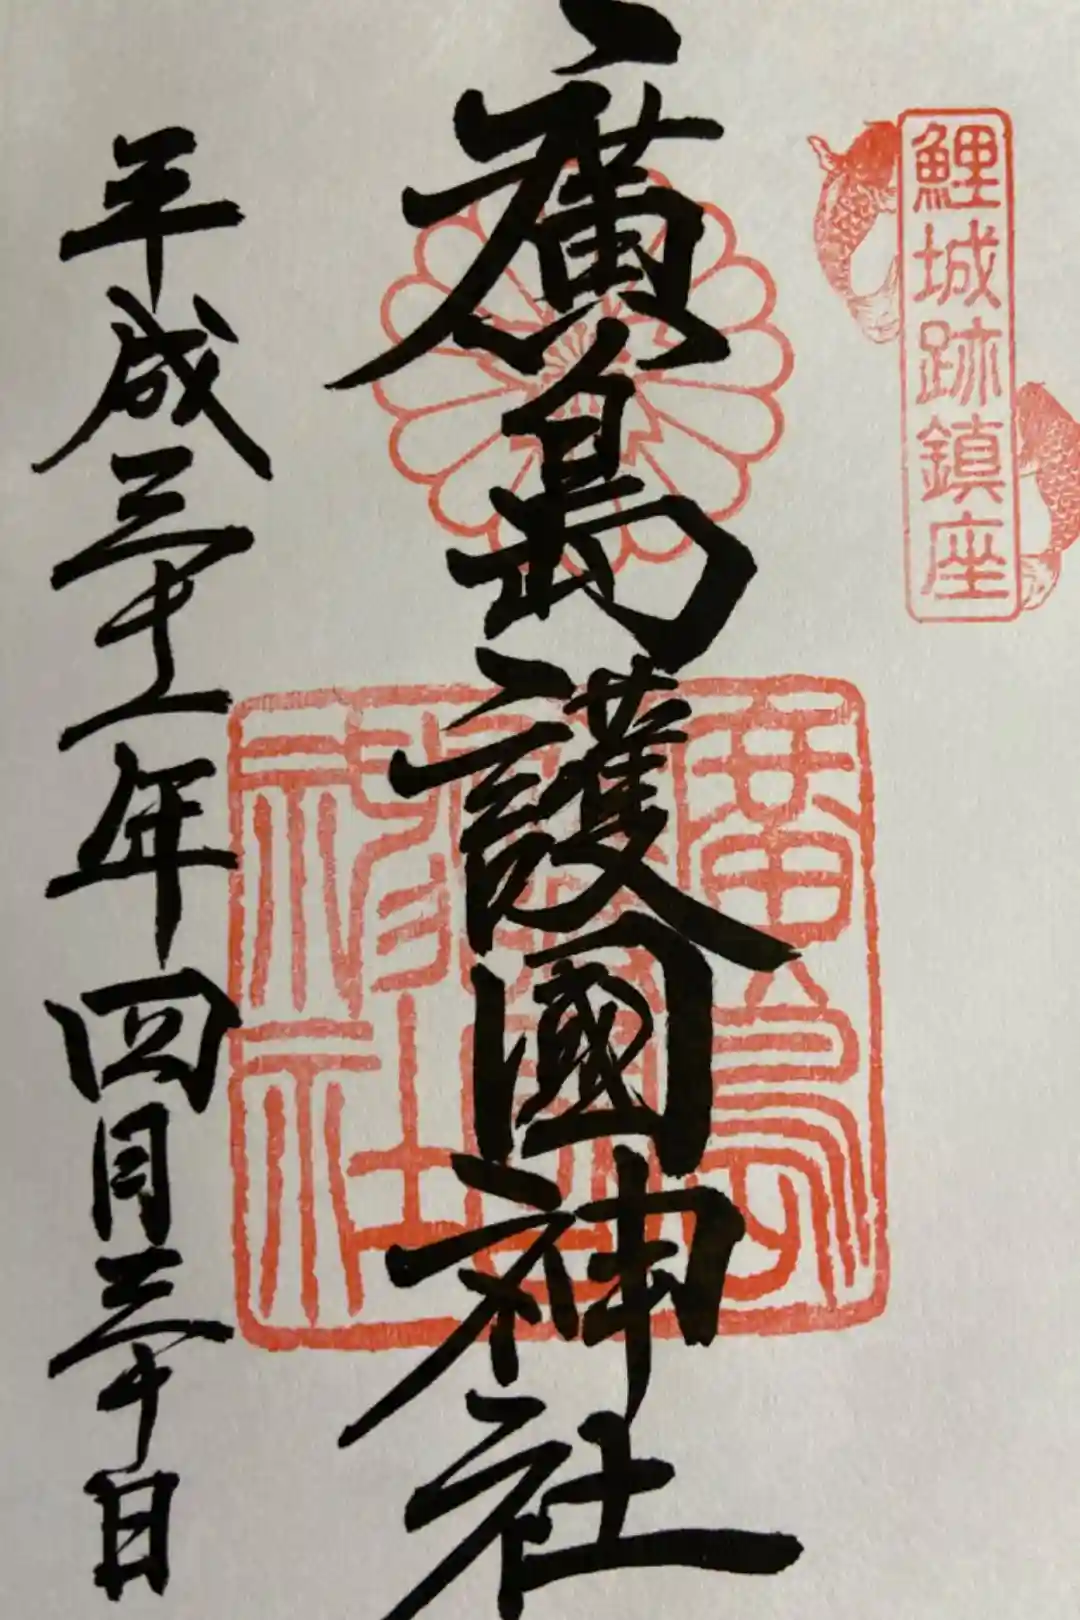 鯉城跡鎮座
廣島護國神社
廣島護國神社
平成三十一年四月三十日